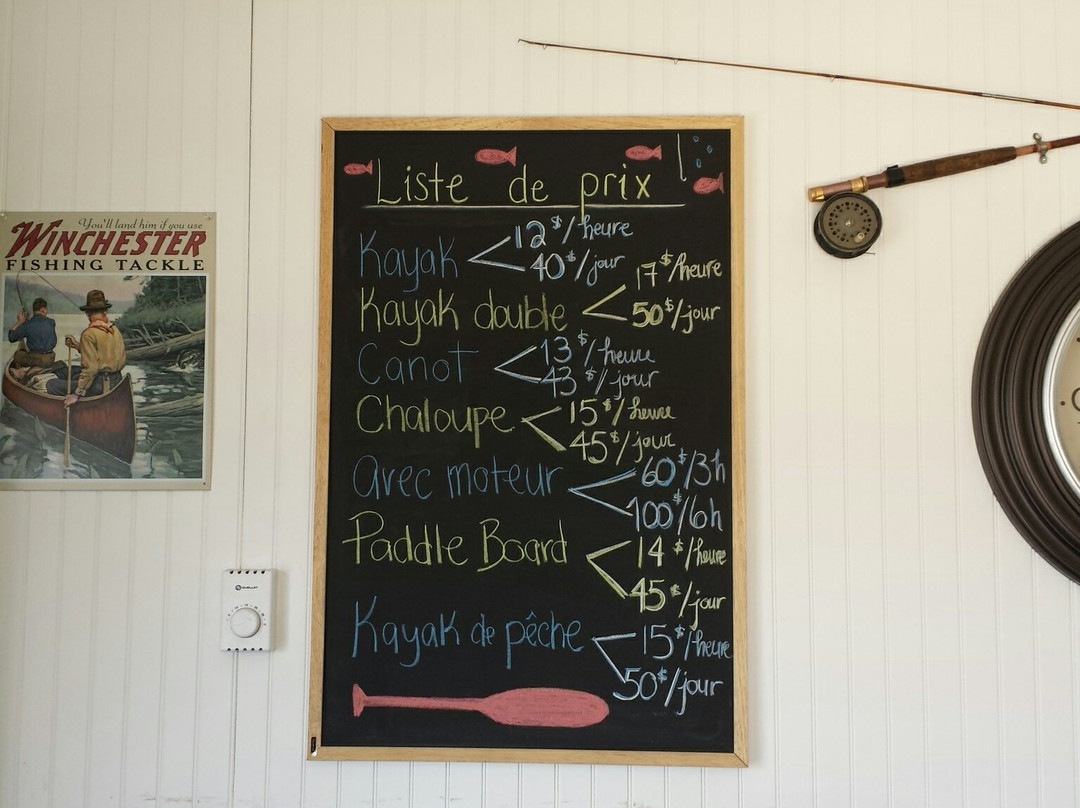 You'll land him if you use
WINCHESTER
FISHING TACKLE
Liste de prix
Kayak 12$/heure
40$/jour
Kayak double 17$/heure
50$/jour
Canot 13$/heure
43$/jour
Chaloupe 15$/heure
45$/jour
avec moteur 60$/3h
100$/6h
Paddle Board 14$/heure
45$/jour
Kayak de pêche 15$/heure
50$/jour